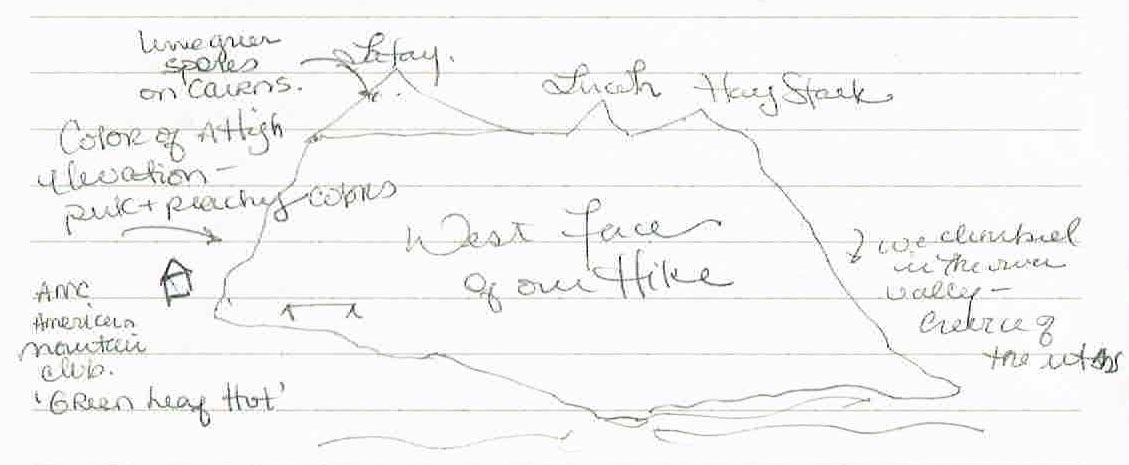 Limegreen
spores
on Cairns.
Lafay.
Lincoln HayStack
Color of A High
Elevation -
pink + peachy colors
West face
of our Hike
we climbed
in the river
valley -
of
the
AMC
American
mountain
club.
'Green Leaf Hut'